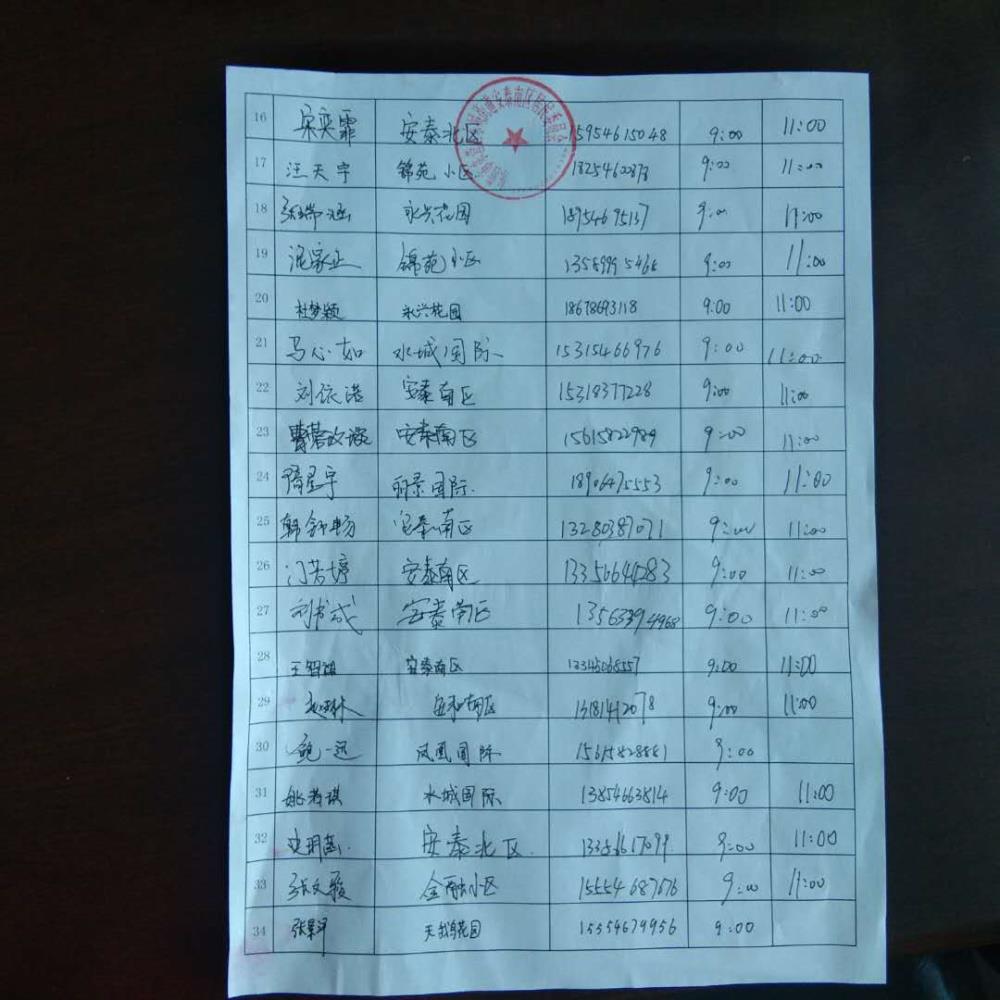 16 宋奕霏 安泰北区 15954615048 9:00 11:00
17 汪天宇 锦苑小区 18254602873 9:00 11:00
18 张瑞涵 永兴花园 18954695137 9:00 11:00
19 锦苑小区 9:00 11:00
20 杜梦颖 永兴花园 18678693118 9:00 11:00
21 马心如 水城国际 15315466976 9:00 11:00
22 刘依诺 安泰南区 15318377228 9:00 11:00
23 安泰南区 15615822989 9:00 11:00
24 丽景国际 18906475553 9:00 11:00
25 韩舒畅 安泰南区 13280387071 9:00 11:00
26 门芳婷 安泰南区 9:00 11:00
27 刘书成 安泰南区 9:00 11:00
28 王智祺 安泰南区 9:00 11:00
29 安和南区 13181412078 9:00 11:00
30 鲍一远 凤凰国际 15615828881 9:00
31 姚若琪 水城国际 13854663814 9:00 11:00
32 史明菡 安泰北区 9:00 11:00
33 张文骏 金融小区 15554687676 9:00 11:00
34 天鹅花园 15554679956 9:00